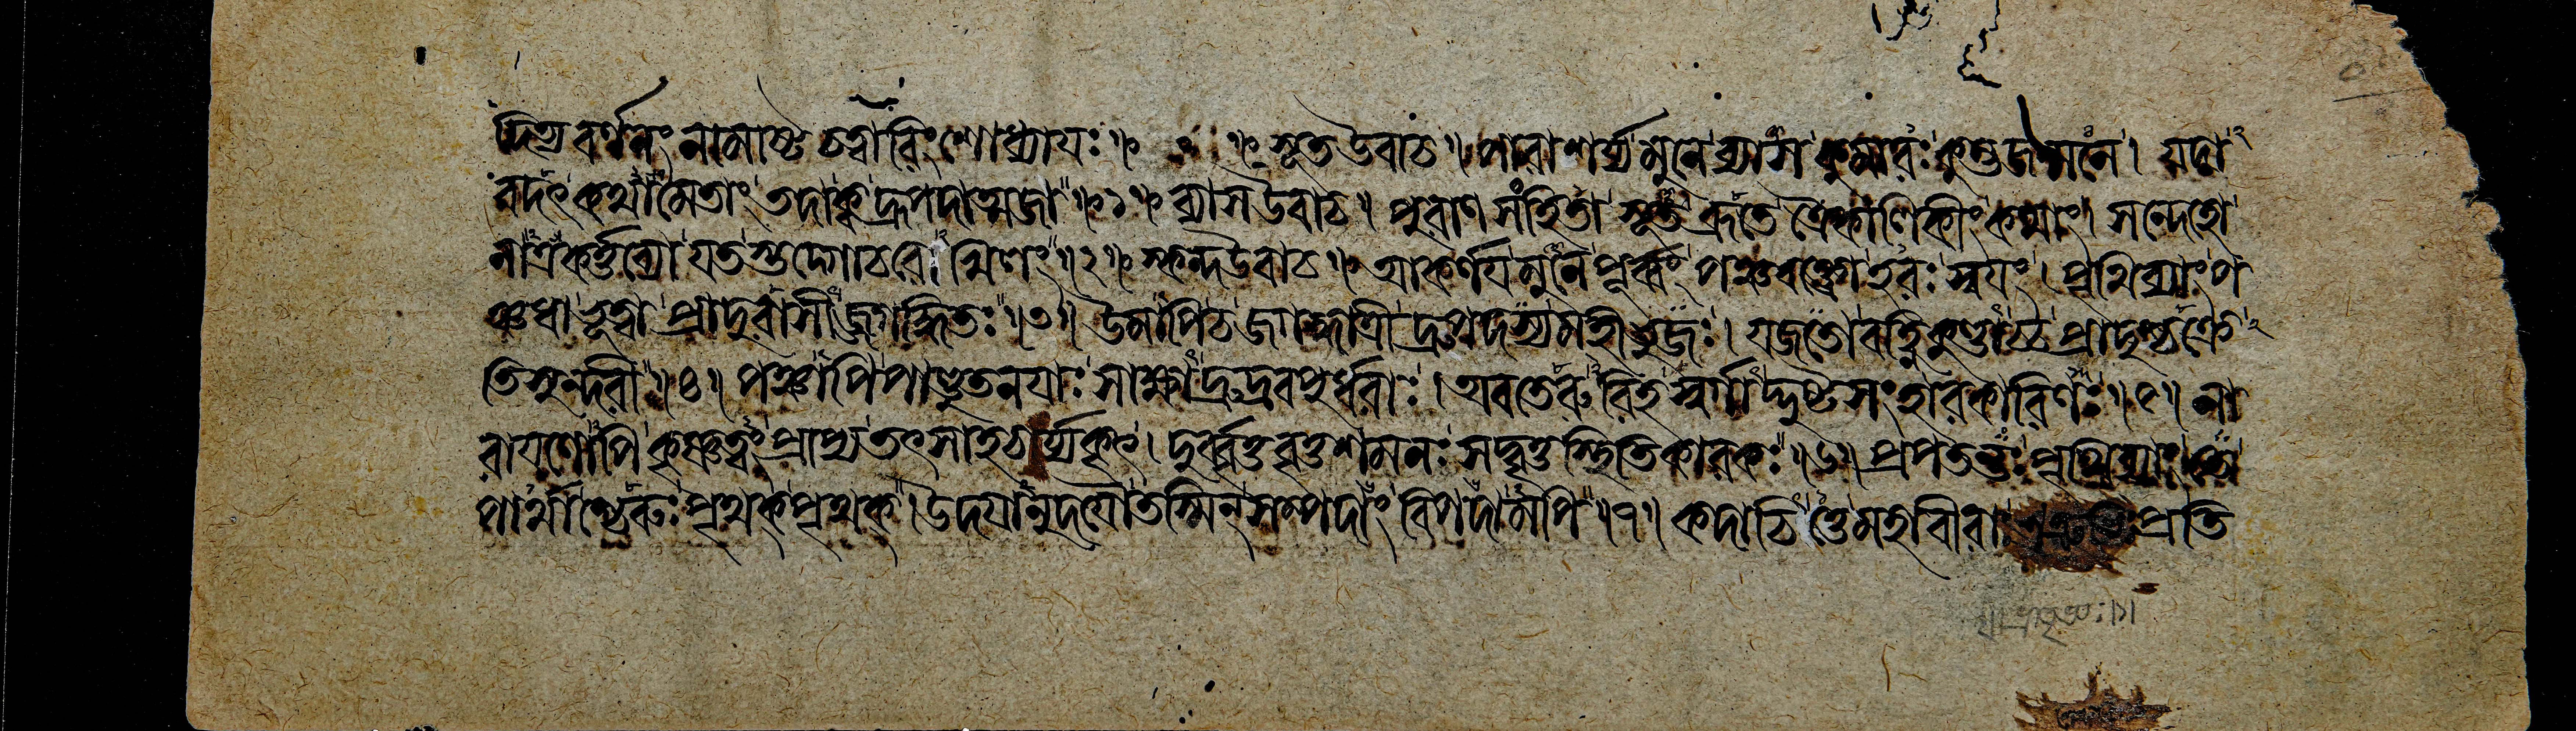 দিত্যবর্ণনং নামাষ্টচত্বারিংশোধ্যাযঃ॥ ০ ॥ সূত উবাচ॥ পারাশর্য্য মুনে ব্যাস কুমারঃ কুম্ভজন্মনে। যদা
বদৎ কথামেতাং তদা ক্ব দ্রুপদাত্মজা॥১॥ ব্যাস উবাচ॥ পুরাণসংহিতা সূত ব্রূতে ত্রৈকালিকীং কথাং। সন্দেহো
নাত্র কর্ত্তব্যো যতস্তদ্গোচরো খিলং॥২॥ স্কন্দ উবাচ॥ আকর্ণয মুনে পূর্ব্বং পঞ্চবক্ত্রো হরঃ স্বযং। পৃথিব্যাং প
ঞ্চধা ভূত্বা প্রাদুরাসীজ্জগদ্ধিতঃ॥৩॥ উমাপি চ জগদ্ধাত্রী দ্রুপদস্য মহীভুজঃ। যজতো বহ্নিকুণ্ডাচ্চ প্রাদুশ্চক্রে
তিসুন্দরী॥৪॥ পঞ্চাপি পাণ্ডুতনযাঃ সাক্ষাদ্রুদ্রবপুর্ধরাঃ। অবতেরুরিহ স্বর্গাদ্দুষ্টসংহারকারিণঃ॥৫॥ না
রাযণোপি কৃষ্ণত্বং প্রাপ্য তৎসাহচর্য্যকৃৎ। দুর্ব্বৃত্তবৃত্তশমনঃ সদ্বৃত্তস্থিতিকারকঃ॥৬॥ প্রপতন্তঃ পৃথিব্যাং তে
পার্থাশ্চেরুঃ পৃথক্ পৃথক্। উদযানুদযৌ তস্মিন্ সম্পদাং বিপদামপি॥৭॥ কদাচিত্তে মহাবীরা প্রতি